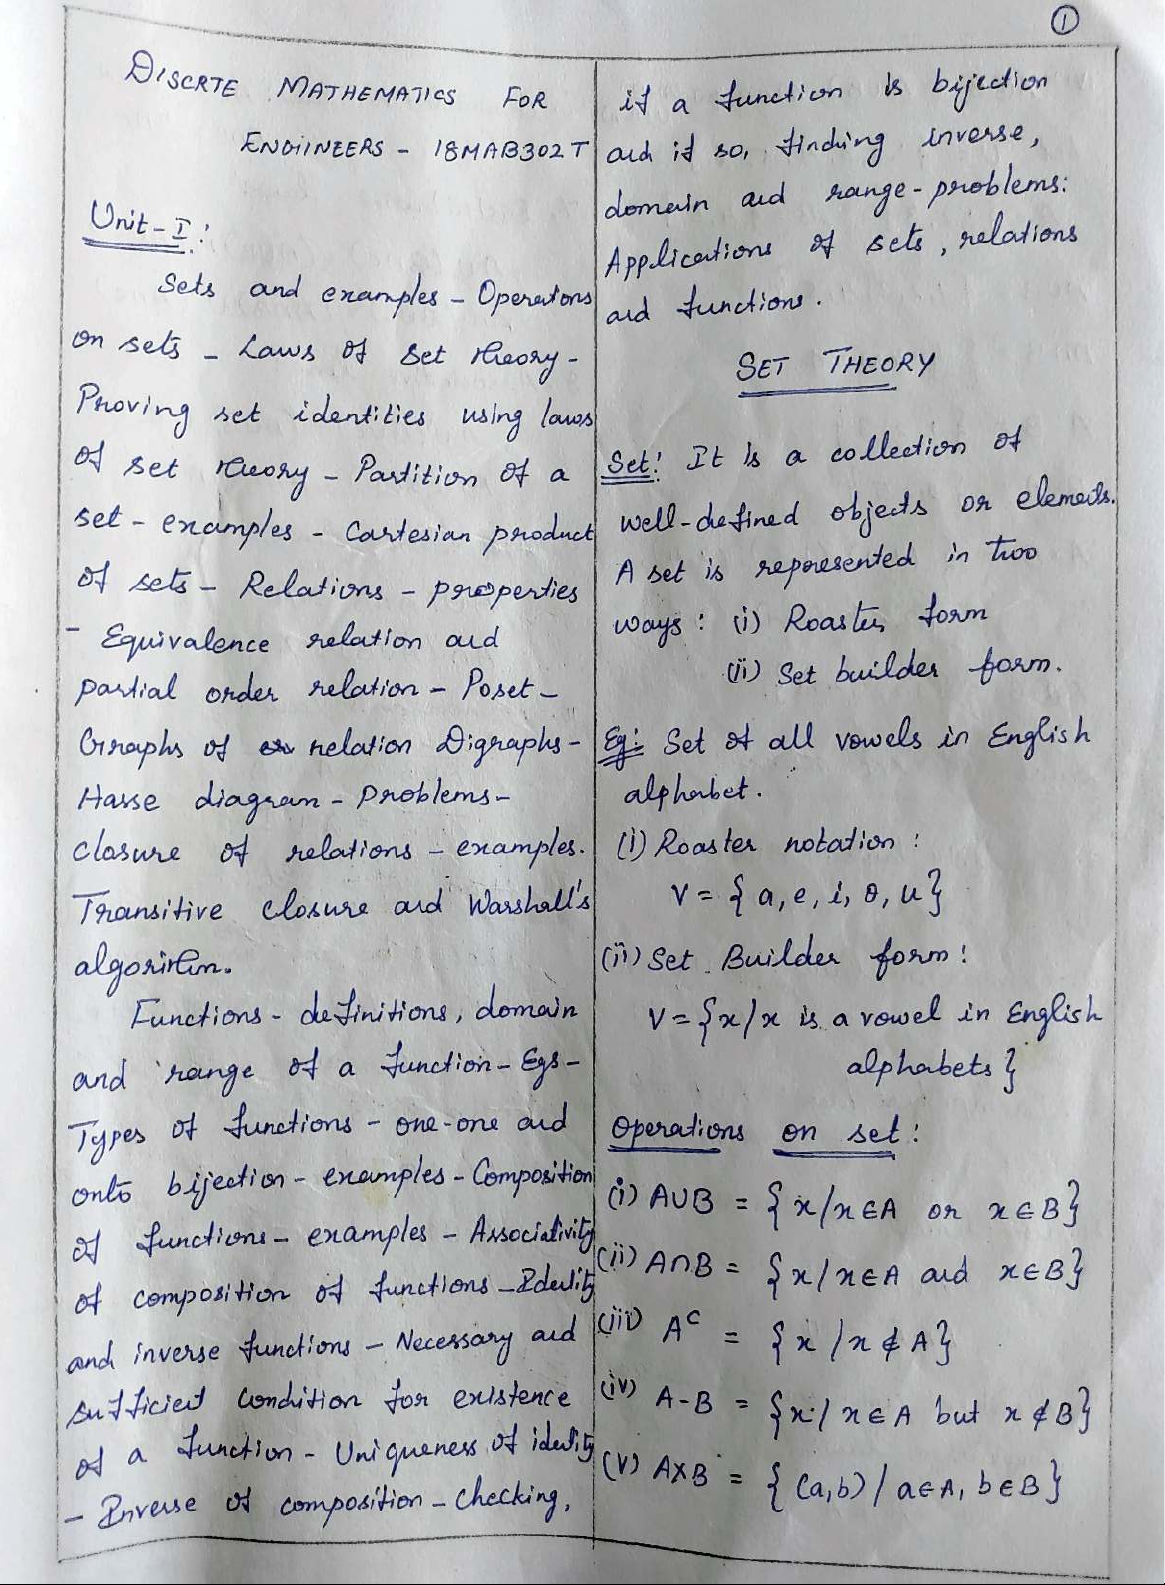 1
DISCRTE MATHEMATICS FOR
ENGIINEERS - 18MAB302T
Unit-I:
Sets and examples - Operations
on sets - Laws of Set theory -
Proving set identities using laws
of set theory - Partition of a
set - examples - Cartesian product
of sets - Relations - properties
- Equivalence relation and
partial order relation - Poset -
Graphs of relation Digraphs -
Hasse diagram - Problems -
closure of relations - examples.
Transitive closure and Warshall's
algorithm.
Functions - definitions, domain
and range of a function - Egs -
Types of functions - one-one and
onto bijection - examples - Composition
of functions - examples - Associativity
of composition of functions - Identity
and inverse functions - Necessary and
sufficient condition for existence
of a function - Uniqueness of identity
- Inverse of composition - checking,
if a function is bijection
and if so, finding inverse,
domain and range - problems:
Applications of sets, relations
and functions.
SET THEORY
Set: It is a collection of
well-defined objects or elements.
A set is represented in two
ways: (i) Roaster form
(ii) Set builder form.
Eg: Set of all vowels in English
alphabet.
(i) Roaster notation :
V = { a, e, i, o, u }
(ii) Set Builder form :
V = { x / x is a vowel in English
alphabets }
Operations on set :
(i) A∪B = { x / x ∈ A or x ∈ B }
(ii) A∩B = { x / x ∈ A and x ∈ B }
(iii) Aᶜ = { x / x ∉ A }
(iv) A-B = { x / x ∈ A but x ∉ B }
(v) A×B = { (a,b) / a ∈ A, b ∈ B }